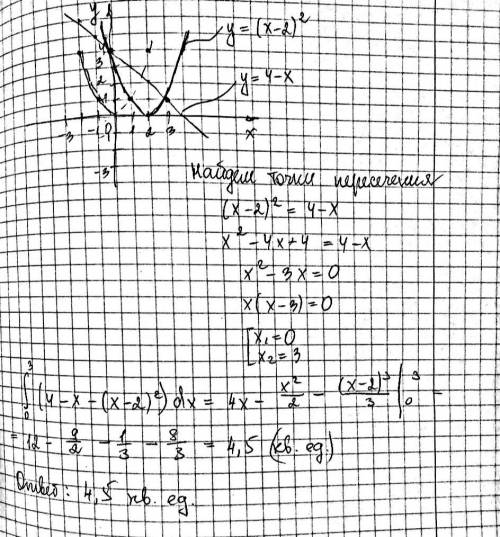 y
y = (x-2)²
4
3
2
1
y = 4-x
-3 -1 0 1 2 3 x
-3
Найдем точки пересечения
(x-2)² = 4-x
x² - 4x + 4 = 4-x
x² - 3x = 0
x(x-3) = 0
[x₁ = 0
x₂ = 3
∫₀³ (4 - x - (x-2)²) dx = 4x - x²/2 - (x-2)³/3 |₀³ =
= 12 - 9/2 - 1/3 - 8/3 = 4,5 (кв. ед.)
Ответ: 4,5 кв. ед.